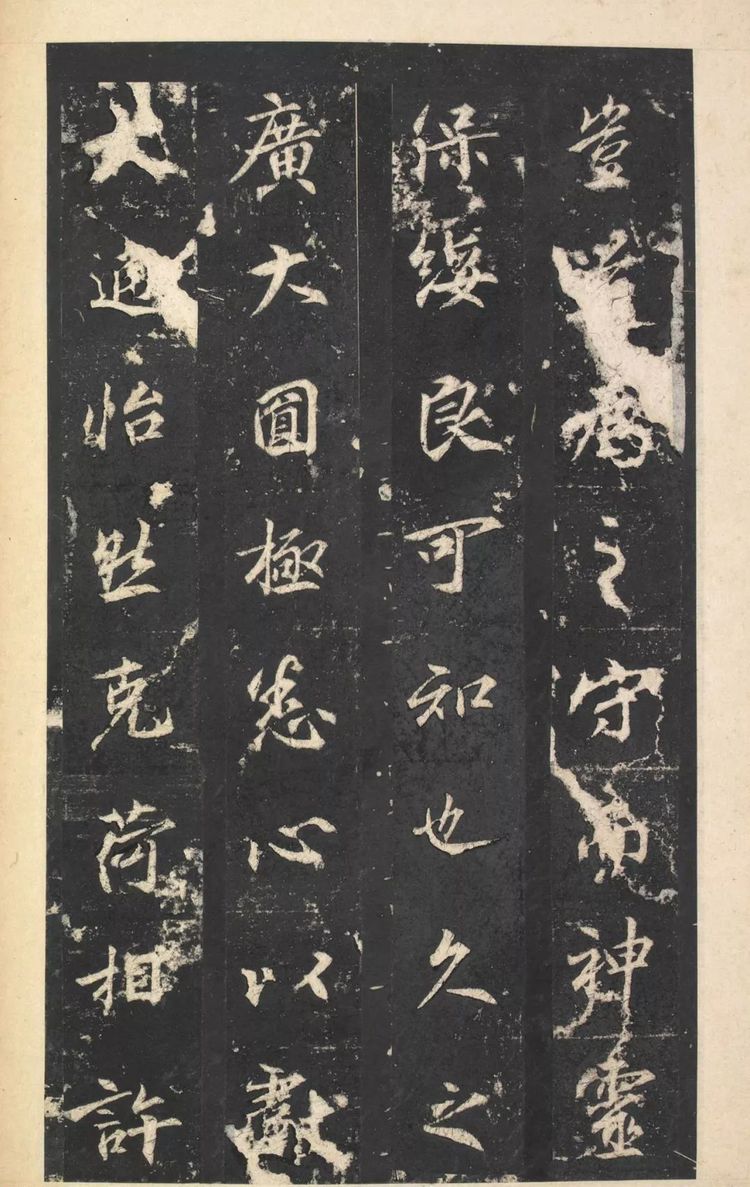 豈為之守神靈
保綏良可知也久之
廣大圓極悉心以獻
怡然克荷相許